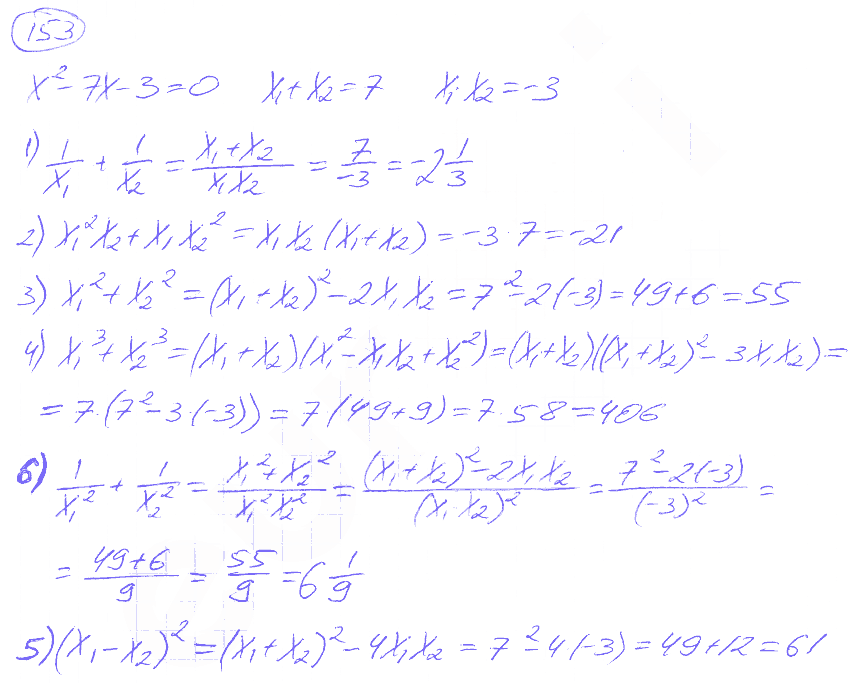 153
x² - 7x - 3 = 0   x₁ + x₂ = 7   x₁·x₂ = -3
1) 1/x₁ + 1/x₂ = (x₁ + x₂)/(x₁x₂) = 7/-3 = -2 1/3
2) x₁²x₂ + x₁x₂² = x₁x₂(x₁ + x₂) = -3·7 = -21
3) x₁² + x₂² = (x₁ + x₂)² - 2x₁x₂ = 7² - 2(-3) = 49 + 6 = 55
4) x₁³ + x₂³ = (x₁ + x₂)(x₁² - x₁x₂ + x₂²) = (x₁ + x₂)((x₁ + x₂)² - 3x₁x₂) =
= 7·(7² - 3·(-3)) = 7(49 + 9) = 7·58 = 406
6) 1/x₁² + 1/x₂² = (x₁² + x₂²)/(x₁²x₂²) = ((x₁ + x₂)² - 2x₁x₂)/(x₁·x₂)² = (7² - 2(-3))/(-3)² =
= (49 + 6)/9 = 55/9 = 6 1/9
5) (x₁ - x₂)² = (x₁ + x₂)² - 4x₁x₂ = 7² - 4(-3) = 49 + 12 = 61